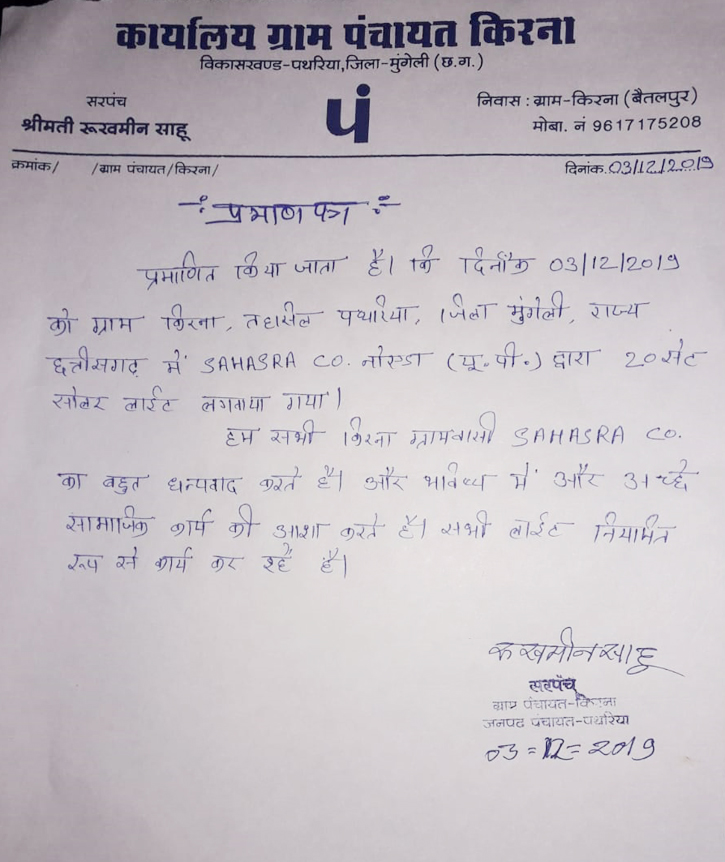 कार्यालय ग्राम पंचायत किरना
विकासखण्ड-पथरिया,जिला-मुंगेली (छ.ग.)
सरपंच
श्रीमती रूखमीन साहू
पं
निवास : ग्राम-किरना (बैतलपुर)
मोबा. नं 9617175208
क्रमांक/ /ग्राम पंचायत/किरना/
दिनांक.03/12/2019
प्रमाण पत्र
प्रमाणित किया जाता है। कि दिनाँक 03/12/2019
को ग्राम किरना, तहसिल पथरिया, जिला मुंगेली, राज्य
छत्तीसगढ़ में SAHASRA CO. नोएडा (यू.पी.) द्वारा 20 सेट
सोलर लाईट लगवाया गया।
हम सभी किरना ग्रामवासी SAHASRA CO.
का बहुत धन्यवाद करते है। और भविष्य में और अच्छे
सामाजिक कार्य की आशा करते है। सभी लाईट नियमित
रूप से कार्य कर रहे है।
रूखमीन साहू
सरपंच
ग्राम पंचायत-किरना
जनपद पंचायत-पथरिया
03=12=2019